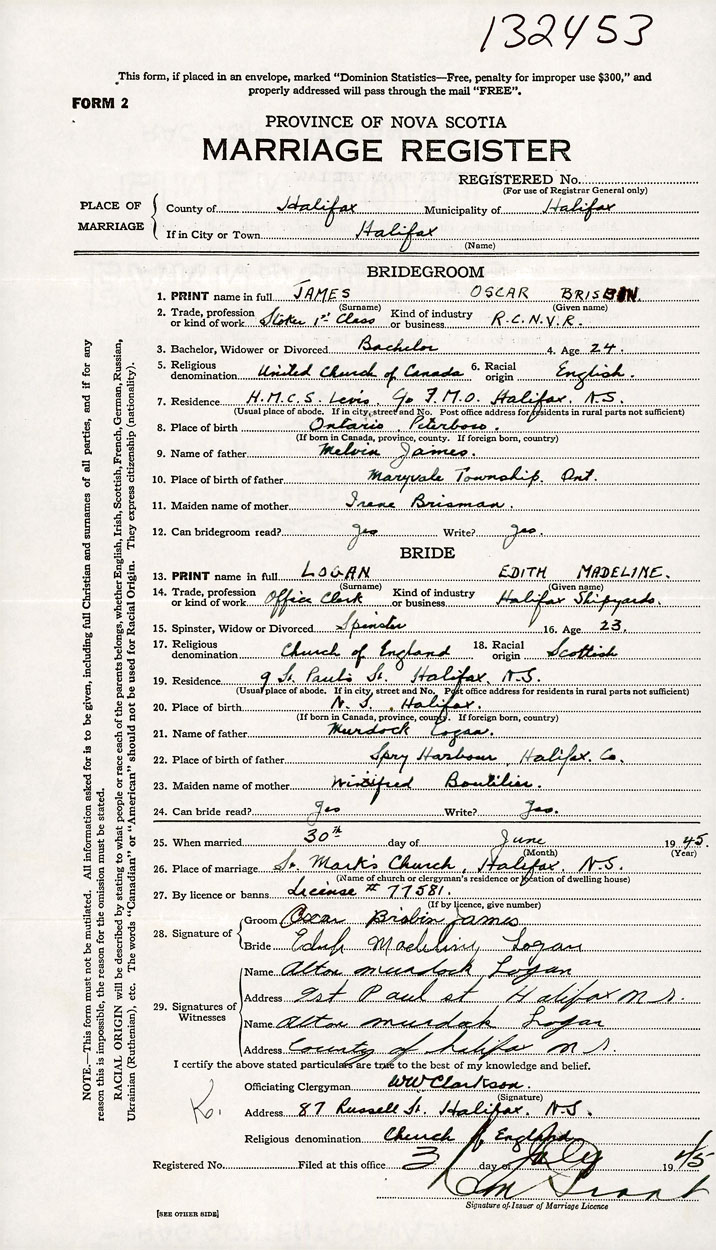 132453
This form, if placed in an envelope, marked "Dominion Statistics—Free, penalty for improper use $300," and
properly addressed will pass through the mail "FREE".
FORM 2
PROVINCE OF NOVA SCOTIA
MARRIAGE REGISTER
REGISTERED No.
(For use of Registrar General only)
PLACE OF MARRIAGE
County of Halifax Municipality of Halifax
If in City or Town Halifax
(Name)
BRIDEGROOM
1. PRINT name in full JAMES OSCAR BRISBIN
(Surname) (Given name)
2. Trade, profession or kind of work Stoker 1st Class Kind of industry or business R.C.N.V.R.
3. Bachelor, Widower or Divorced Bachelor 4. Age 24.
5. Religious denomination United Church of Canada 6. Racial origin English.
7. Residence H.M.C.S. Levis, % F.M.O. Halifax, N.S.
(Usual place of abode. If in city, street and No. Post office address for residents in rural parts not sufficient)
8. Place of birth Ontario, Peterboro.
(If born in Canada, province, county. If foreign born, country)
9. Name of father Melvin James.
10. Place of birth of father Maryvale Township. Ont.
11. Maiden name of mother Irene Brisman.
12. Can bridegroom read? Yes Write? Yes.
BRIDE
13. PRINT name in full LOGAN EDITH MADELINE.
(Surname) (Given name)
14. Trade, profession or kind of work Office Clerk Kind of industry or business Halifax Shipyards.
15. Spinster, Widow or Divorced Spinster 16. Age 23.
17. Religious denomination Church of England 18. Racial origin Scottish
19. Residence 9 St. Paul's St. Halifax, N.S.
(Usual place of abode. If in city, street and No. Post office address for residents in rural parts not sufficient)
20. Place of birth N.S., Halifax.
(If born in Canada, province, county. If foreign born, country)
21. Name of father Murdock Logan.
22. Place of birth of father Spry Harbour, Halifax. Co.
23. Maiden name of mother Winifred Boutilier.
24. Can bride read? Yes Write? Yes.
25. When married 30th day of June 1945.
(Month) (Year)
26. Place of marriage St. Mark's Church, Halifax, N.S.
(Name of church or clergyman's residence or location of dwelling house)
27. By licence or banns License # 77581.
(If by licence, give number)
28. Signature of
Groom Oscar Brisbin James
Bride Edith Madeline Logan
29. Signatures of Witnesses
Name Alton murdock Logan
Address 9 st Paul st Halifax N S.
Name Alton murdock Logan
Address County of halifax N S.
I certify the above stated particulars are true to the best of my knowledge and belief.
Officiating Clergyman WW Clarkson.
(Signature)
Address 87 Russell St. Halifax, N.S.
Religious denomination Church of England
Registered No. Filed at this office 3 day of July 1945
Grant
Signature of Issuer of Marriage Licence
[SEE OTHER SIDE]
NOTE.—This form must not be mutilated. All information asked for is to be given, including full Christian and surnames of all parties, and if for any
reason this is impossible, the reason for the omission must be stated.
RACIAL ORIGIN will be described by stating to what people or race each of the parents belongs, whether English, Irish, Scottish, French, German, Russian,
Ukrainian (Ruthenian), etc. The words "Canadian" or "American" should not be used for Racial Origin. They express citizenship (nationality).